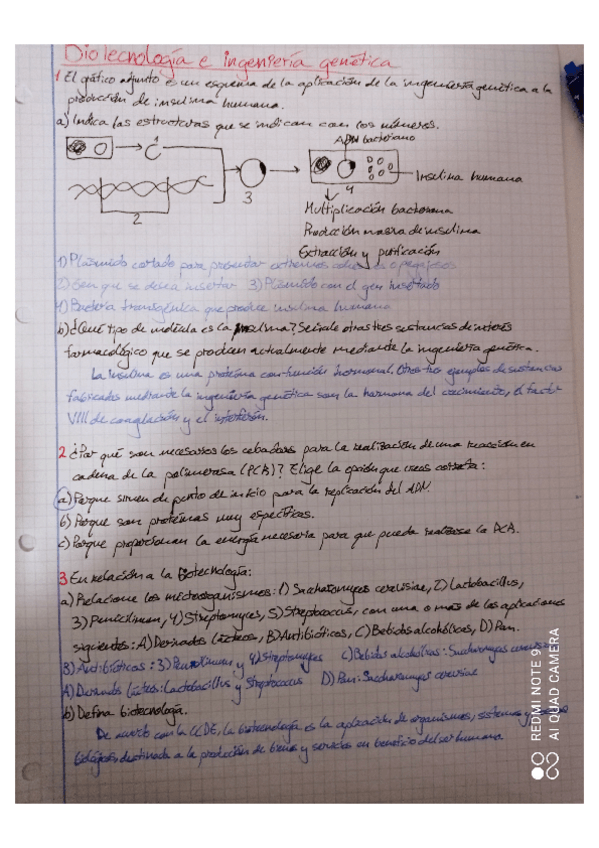 Biotecnología e ingeniería genética
1 El gráfico adjunto es un esquema de la aplicación de la ingeniería genética a la
producción de insulina humana.
a) Indica las estructuras que se indican con los números.
ADN bacteriano
1
2
3
4
Insulina humana
Multiplicación bacteriana
Producción masiva de insulina
Extracción y purificación
1) Plásmido cortado para presentar extremos cohesivos o pegajosos
2) Gen que se desea insertar 3) Plásmido con el gen insertado
4) Bacteria transgénica que produce insulina humana
b) ¿Qué tipo de molécula es la insulina? Señale otras tres sustancias de interés
farmacológico que se producen actualmente mediante la ingeniería genética.
La insulina es una proteína con función hormonal. Otros tres ejemplos de sustancias
fabricadas mediante la ingeniería genética son la hormona del crecimiento, el factor
VIII de coagulación y el interferón.
2 ¿Por qué son necesarios los cebadores para la realización de una reacción en
cadena de la polimerasa (PCR)? Elige la opción que creas correcta:
a) Porque sirven de punto de inicio para la replicación del ADN.
b) Porque son proteínas muy específicas.
c) Porque proporcionan la energía necesaria para que pueda realizarse la PCR.
3 En relación a la Biotecnología:
a) Relacione los microorganismos: 1) Saccharomyces cerevisiae, 2) Lactobacillus,
3) Penicillium, 4) Streptomyces, 5) Streptococcus, con una o más de las aplicaciones
siguientes: A) Derivados lácteos, B) Antibióticos, C) Bebidas alcohólicas, D) Pan.
B) Antibióticos: 3) Penicillium y 4) Streptomyces C) Bebidas alcohólicas: Saccharomyces cerevisiae
A) Derivados lácteos: Lactobacillus y Streptococcus D) Pan: Saccharomyces cerevisiae
b) Defina biotecnología.
De acuerdo con la la biotecnología es la aplicación de organismos, sistemas y
biológicos destinada a la producción de bienes y servicios en beneficio del ser humano
REDMI NOTE 9
AI QUAD CAMERA